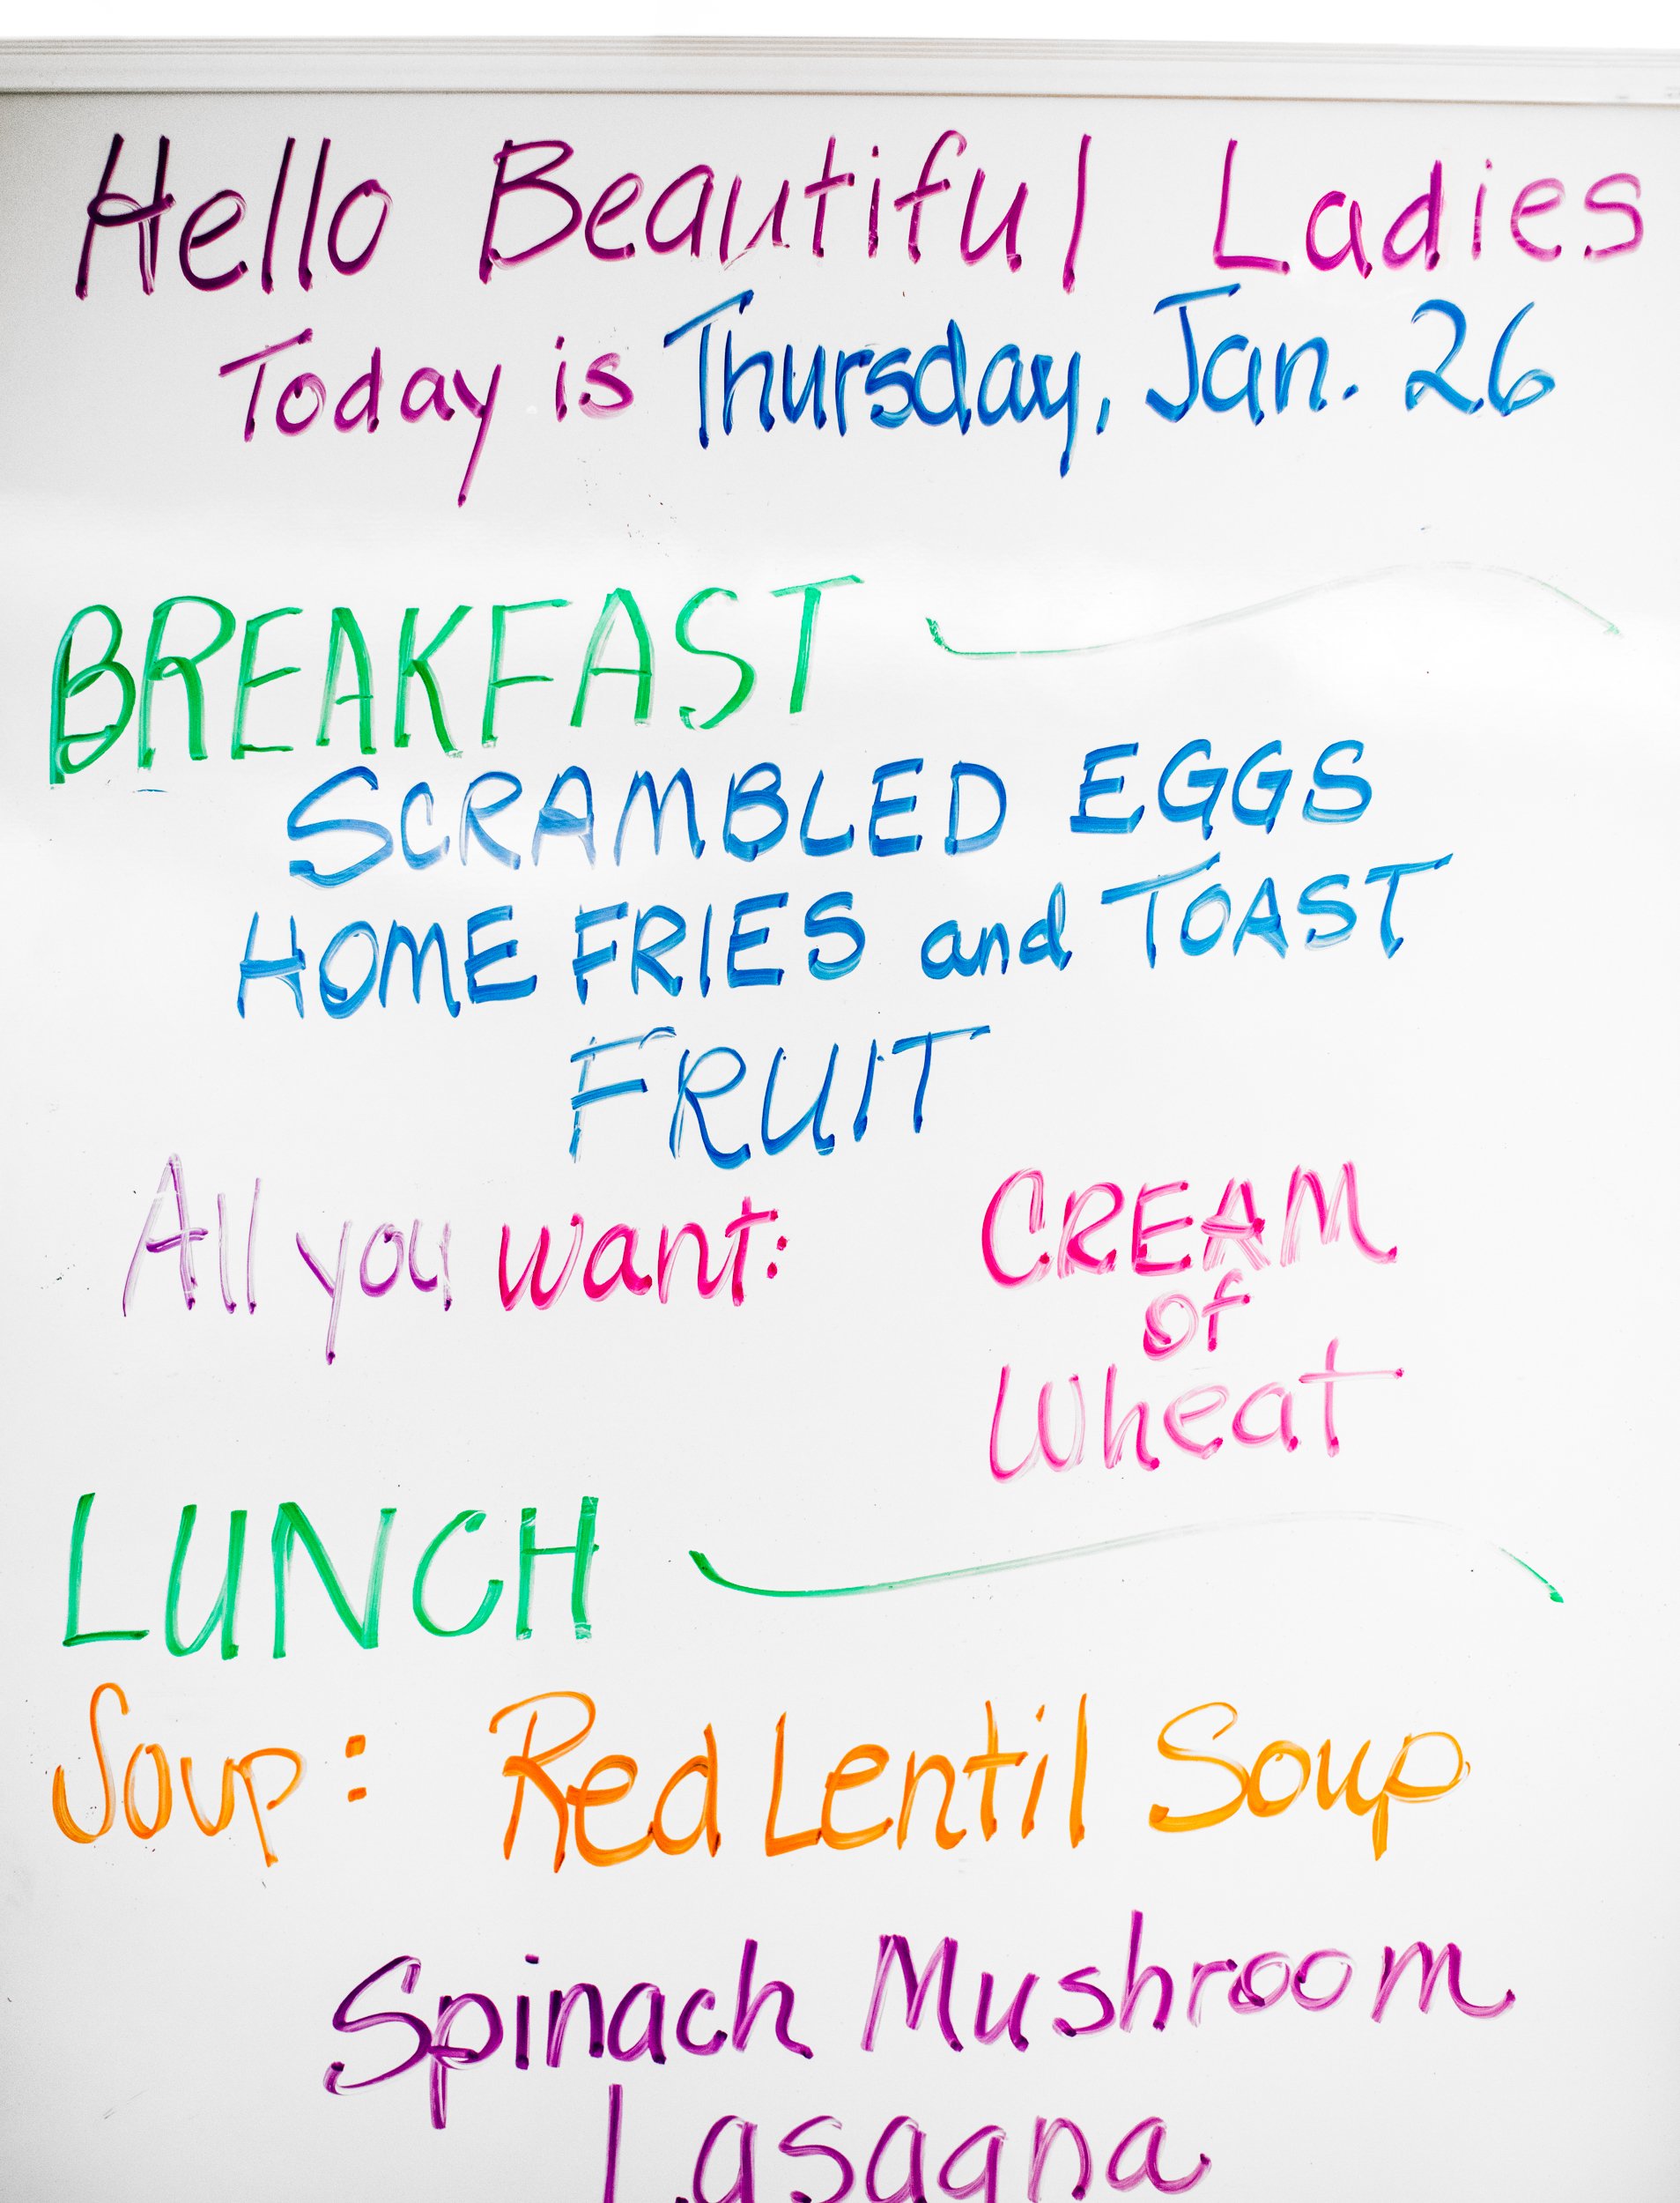 Hello Beautiful Ladies
Today is Thursday, Jan. 26
BREAKFAST
SCRAMBLED EGGS
HOME FRIES and TOAST
FRUIT
All you want: CREAM
of
Wheat
LUNCH
Soup: Red Lentil Soup
Spinach Mushroom
Lasagna